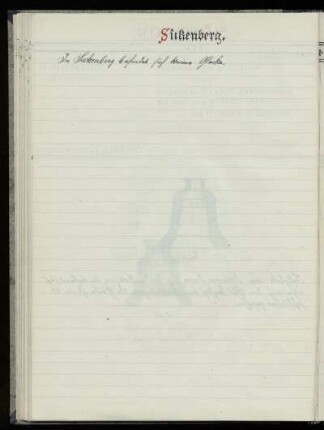 Sickenberg.
In Sickenberg befindet sich keine Glocke.